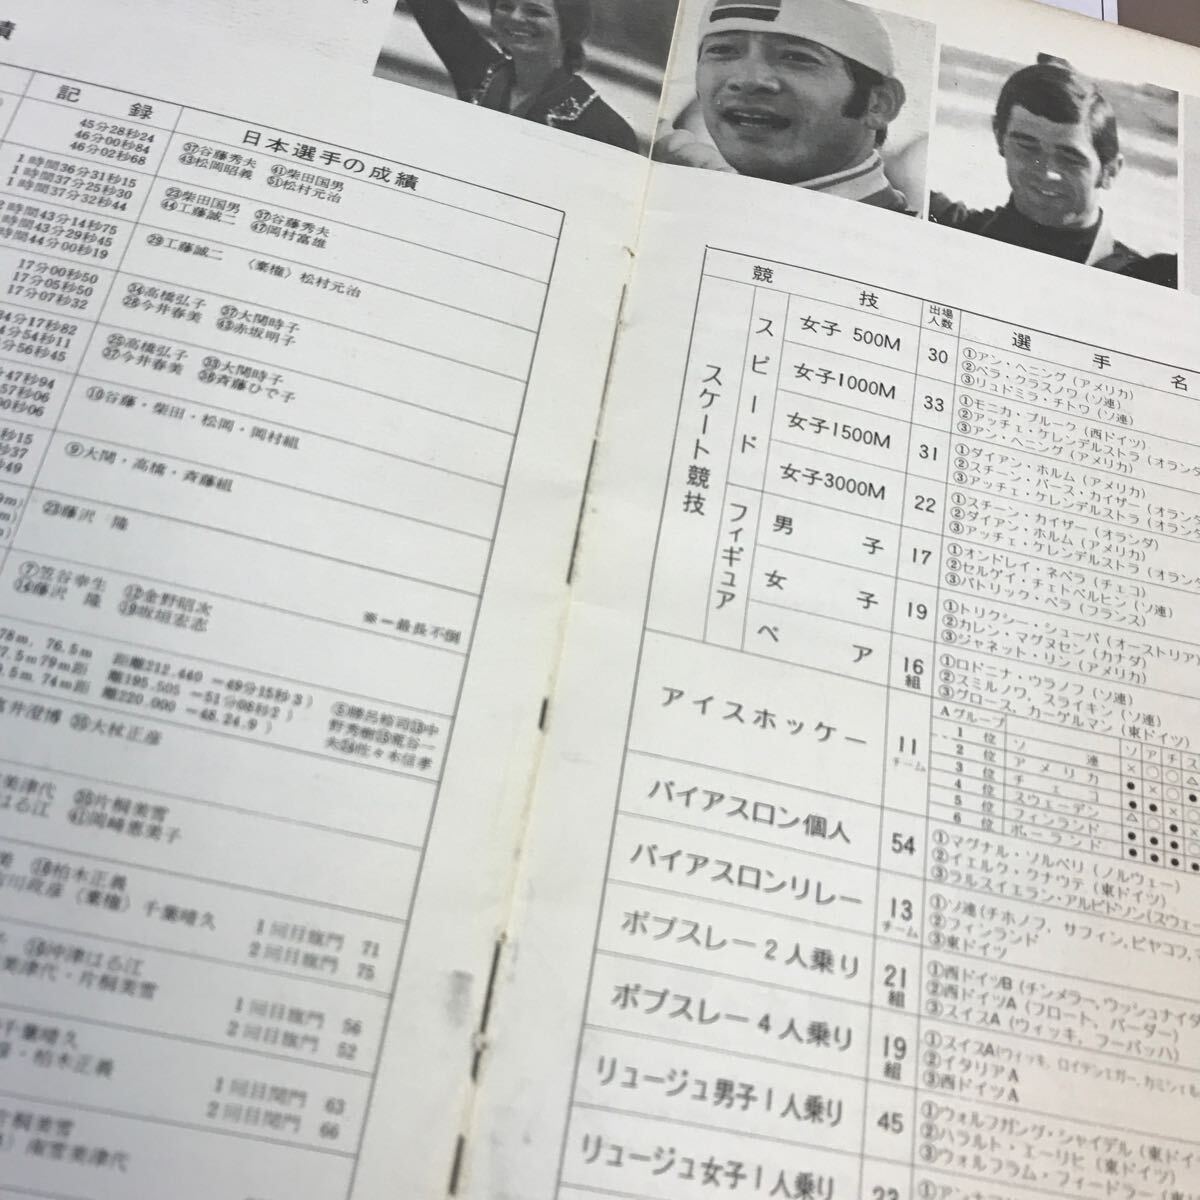 績
記録
日本選手の成績
45分28秒24
46分00秒84
46分02秒68
㊲谷藤秀夫 ㊶柴田国男
㊸松岡昭義 �51松村元治
1時間36分31秒15
1時間37分25秒30
1時間37分32秒44
㉓柴田国男 ㊲谷藤秀夫
㊹工藤誠二 ㊼岡村富雄
2時間43分14秒75
時間43分29秒45
時間44分00秒19
㉙工藤誠二 〈棄権〉松村元治
17分00秒50
17分05秒50
17分07秒32
㉞高橋弘子 ㊲大関時子
㊳今井春美 ㊸赤坂明子
34分17秒82
4分54秒11
分56秒45
㉕高橋弘子 ㉝大関時子
㊲今井春美 ㊳斉藤ひで子
分47秒94
57秒06
00秒06
⑩谷藤・柴田・松岡・岡村組
秒15
秒37
秒49
⑨大関・高橋・斉藤組
㉓藤沢 隆
⑦笠谷幸生 ⑫金野昭次
⑭藤沢 隆 ⑲板垣宏志
※=最長不倒
78m, 76.5m 距離212.440－49分15秒3)
7.5m79m距離195.505－51分08秒2)
9.5m. 74m距離220.000－48.24.9)
⑤勝呂裕司⑬中
野秀樹⑮荒谷一
夫㉘佐々木信孝
高井澄博 ㉟大杖正彦
美津代 ㊱片桐美雪
はる江 ㊶岡崎恵美子
美 ⑱柏木正義
古川政彦〈棄権〉千葉晴久
1回目旗門 71
2回目旗門 75
沖津はる江
美津代・片桐美雪
1回目旗門 56
2回目旗門 52
千葉晴久
彦・柏木正義
1回目関門 63
2回目関門 66
片桐美雪
南雲美津代
競技
出場人数
選手名
スケート競技
スピード
女子 500M
30
①アン・ヘニング(アメリカ)
②ベラ・クラスノワ(ソ連)
③リュドミラ・チトワ(ソ連)
女子1000M
33
①モニカ・プルーク(西ドイツ)
②アッチェ・ケレンデルストラ(オランダ
③アン・ヘニング(アメリカ)
女子1500M
31
①ダイアン・ホルム(アメリカ)
②スチーン・バース・カイザー(オラン
③アッチェ・ケレンデルストラ(オラン
女子3000M
22
①スチーン・カイザー(オランダ)
②ダイアン・ホルム(アメリカ)
③アッチェ・ケレンデルストラ(オランダ
フィギュア
男子
17
①オンドレイ・ネペラ(チェコ)
②セルゲイ・チェトベルヒン(ソ連)
③パトリック・ペラ(フランス)
女子
19
①トリクシー・シューバ(オーストリア)
②カレン・マグヌセン(カナダ)
③ジャネット・リン(アメリカ)
ペア
16組
①ロドニナ・ウラノフ(ソ連)
②スミルノワ, スライキン(ソ連)
③グロース, カーゲルマン(東ドイツ)
アイスホッケー
11チーム
Aグループ ソ ア チ ス
1位 ソ連
2位 アメリカ
3位 チェコ
4位 スウェーデン
5位 フィンランド
6位 ポーランド
バイアスロン個人
54
①マグナル・ソルベリ(ノルウェー)
②イエルク・クナウテ(東ドイツ)
③ラルスイエラン・アルビドソン(スウェ
バイアスロンリレー
13チーム
①ソ連(チホノフ, サフィン, ビヤコフ,
②フィンランド
③東ドイツ
ボブスレー2人乗り
21組
①西ドイツB(チンメラー, ウッシュナイダ
②西ドイツA(フロート, バーダー)
③スイスA(ウィッキ, フーバッハ)
ボブスレー4人乗り
19組
①スイスA(ウィッキ, ロイテンエガー, カミンヒ
②イタリアA
③西ドイツA
リュージュ男子1人乗り
45
①ウォルフガング・シャイデル(東ドイ
②ハラルト・エーリヒ(東ドイツ)
③ウォルフラム・フィードラ
リュージュ女子1人乗り